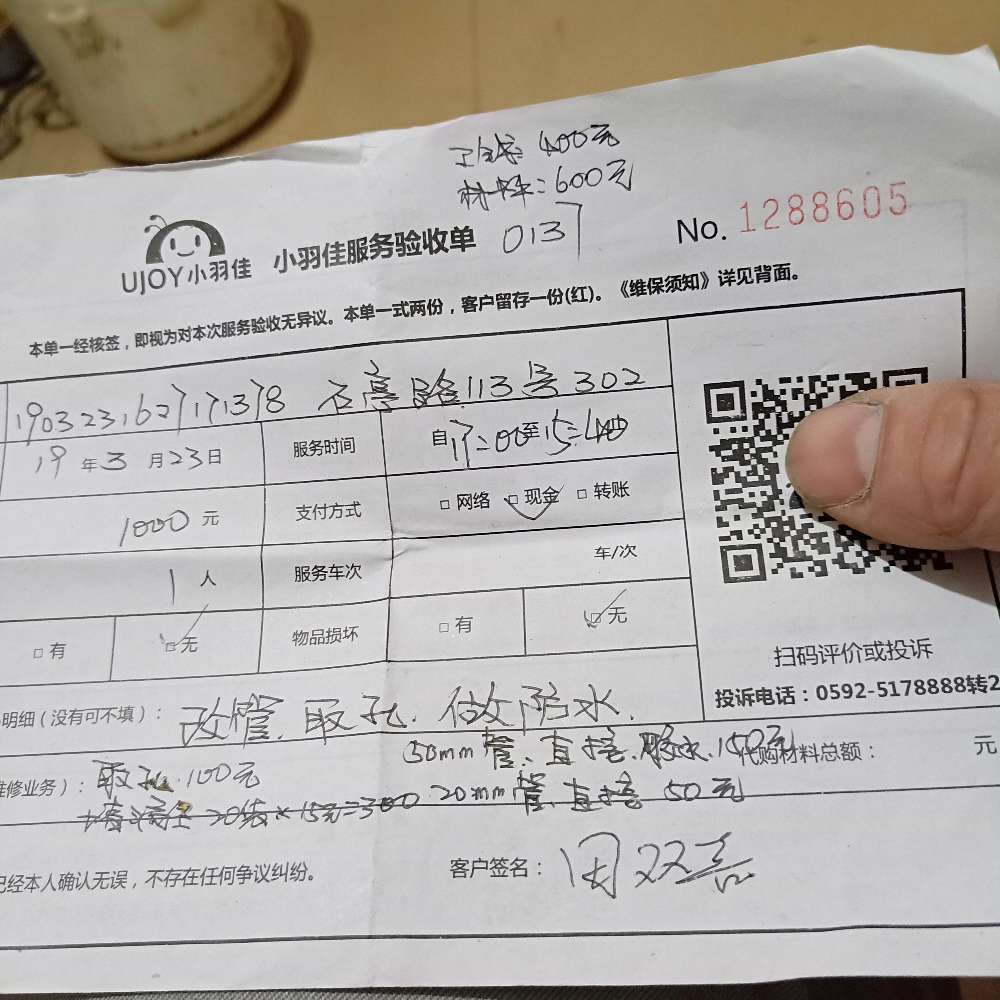 工钱: 400元
材料: 600元
UJOY小羽佳 小羽佳服务验收单 0137 No. 1288605
本单一经核签，即视为对本次服务验收无异议。本单一式两份，客户留存一份(红)。《维保须知》详见背面。
路113号302
19年3月23日 服务时间 自 至
1000元 支付方式 □网络 □现金 □转账
1人 服务车次 车/次
□有 □无 物品损坏 □有 □无
扫码评价或投诉
投诉电话：0592-5178888转2
明细（没有可不填）： 改管. 取孔. 做防水.
50mm管、直接、胶水.150元
维修业务）： 取孔.100元 代购材料总额： 元
20袋*15元=300 20mm管.直接 50元
已经本人确认无误，不存在任何争议纠纷。 客户签名： 周双喜